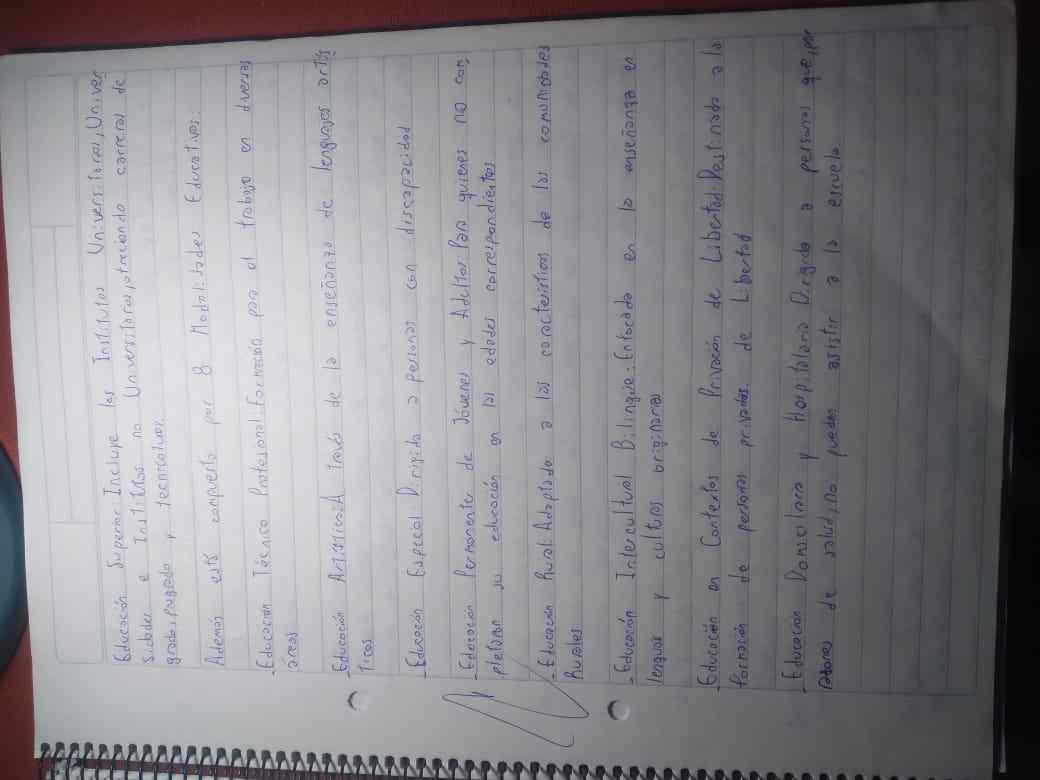 Educación Superior: Incluye los Institutos Universitarios, Univer
sidades e Institutos no Universitarios, ofreciendo carreras de
grado, posgrado y tecnicaturas.
Además está compuesto por 8 Modalidades Educativas:
- Educación Técnico Profesional: Formación para el trabajo en diversas
áreas
- Educación Artística: A través de la enseñanza de lenguajes artís
ticos
- Educación Especial: Dirigida a personas con discapacidad
- Educación Permanente de Jóvenes y Adultos: Para quienes no com
pletaron su educación en las edades correspondientes
- Educación Rural: Adaptada a las características de las comunidades
Rurales
- Educación Intercultural Bilingüe: Enfocada en la enseñanza en
lenguas y culturas originarias
- Educación en Contextos de Privación de Libertad: Destinada a la
formación de personas privadas de Libertad
- Educación Domiciliaria y Hospitalaria: Dirigida a personas que, por
razones de salud, no pueden asistir a la escuela.